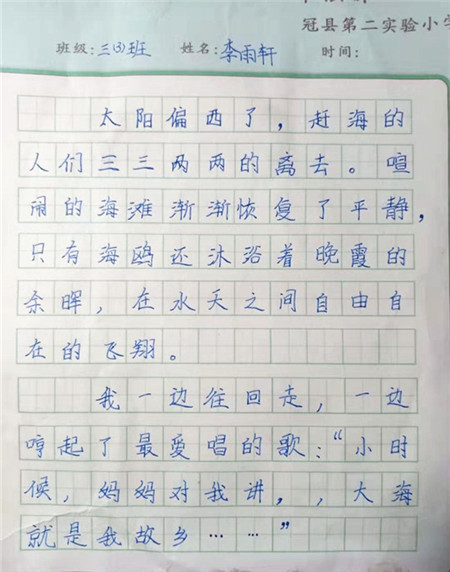 冠县第二实验小学
班级:三(3)班 姓名:李雨轩 时间:
太阳偏西了,赶海的
人们三三两两的离去。喧
闹的海滩渐渐恢复了平静,
只有海鸥还沐浴着晚霞的
余晖,在水天之间自由自
在的飞翔。
我一边往回走,一边
哼起了最爱唱的歌:“小时
候,妈妈对我讲,,大海
就是我故乡……”